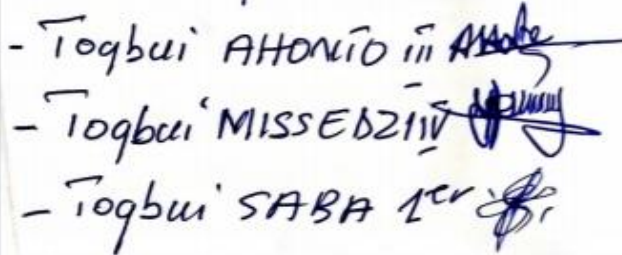 - Togbui AHONTO iii
- Togbui MISSEDZI IV
- Togbui SABA 1er